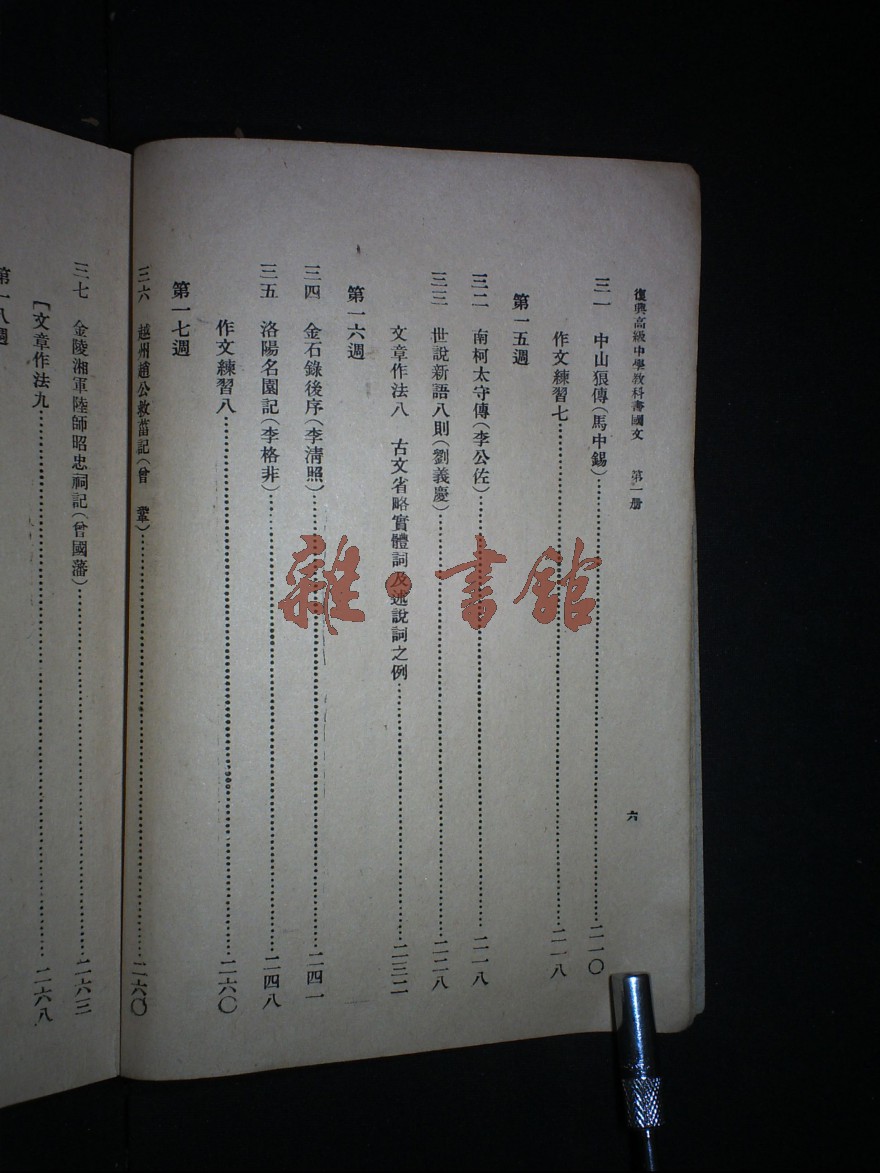 復興高級中學教科書國文 第一册
六
三一 中山狼傳(馬中錫)……二一〇
作文練習七……二一八
第一五週
三二 南柯太守傳(李公佐)……二一八
三三 世說新語八則(劉義慶)……二二八
文章作法八 古文省略實體詞及述說詞之例……二三二
第一六週
三四 金石錄後序(李清照)……二四一
三五 洛陽名園記(李格非)……二四八
作文練習八……二六〇
第一七週
三六 越州趙公救菑記(曾 鞏)……二六〇
三七 金陵湘軍陸師昭忠祠記(曾國藩)……二六三
〔文章作法九……二六八
第一八週
雜·書館